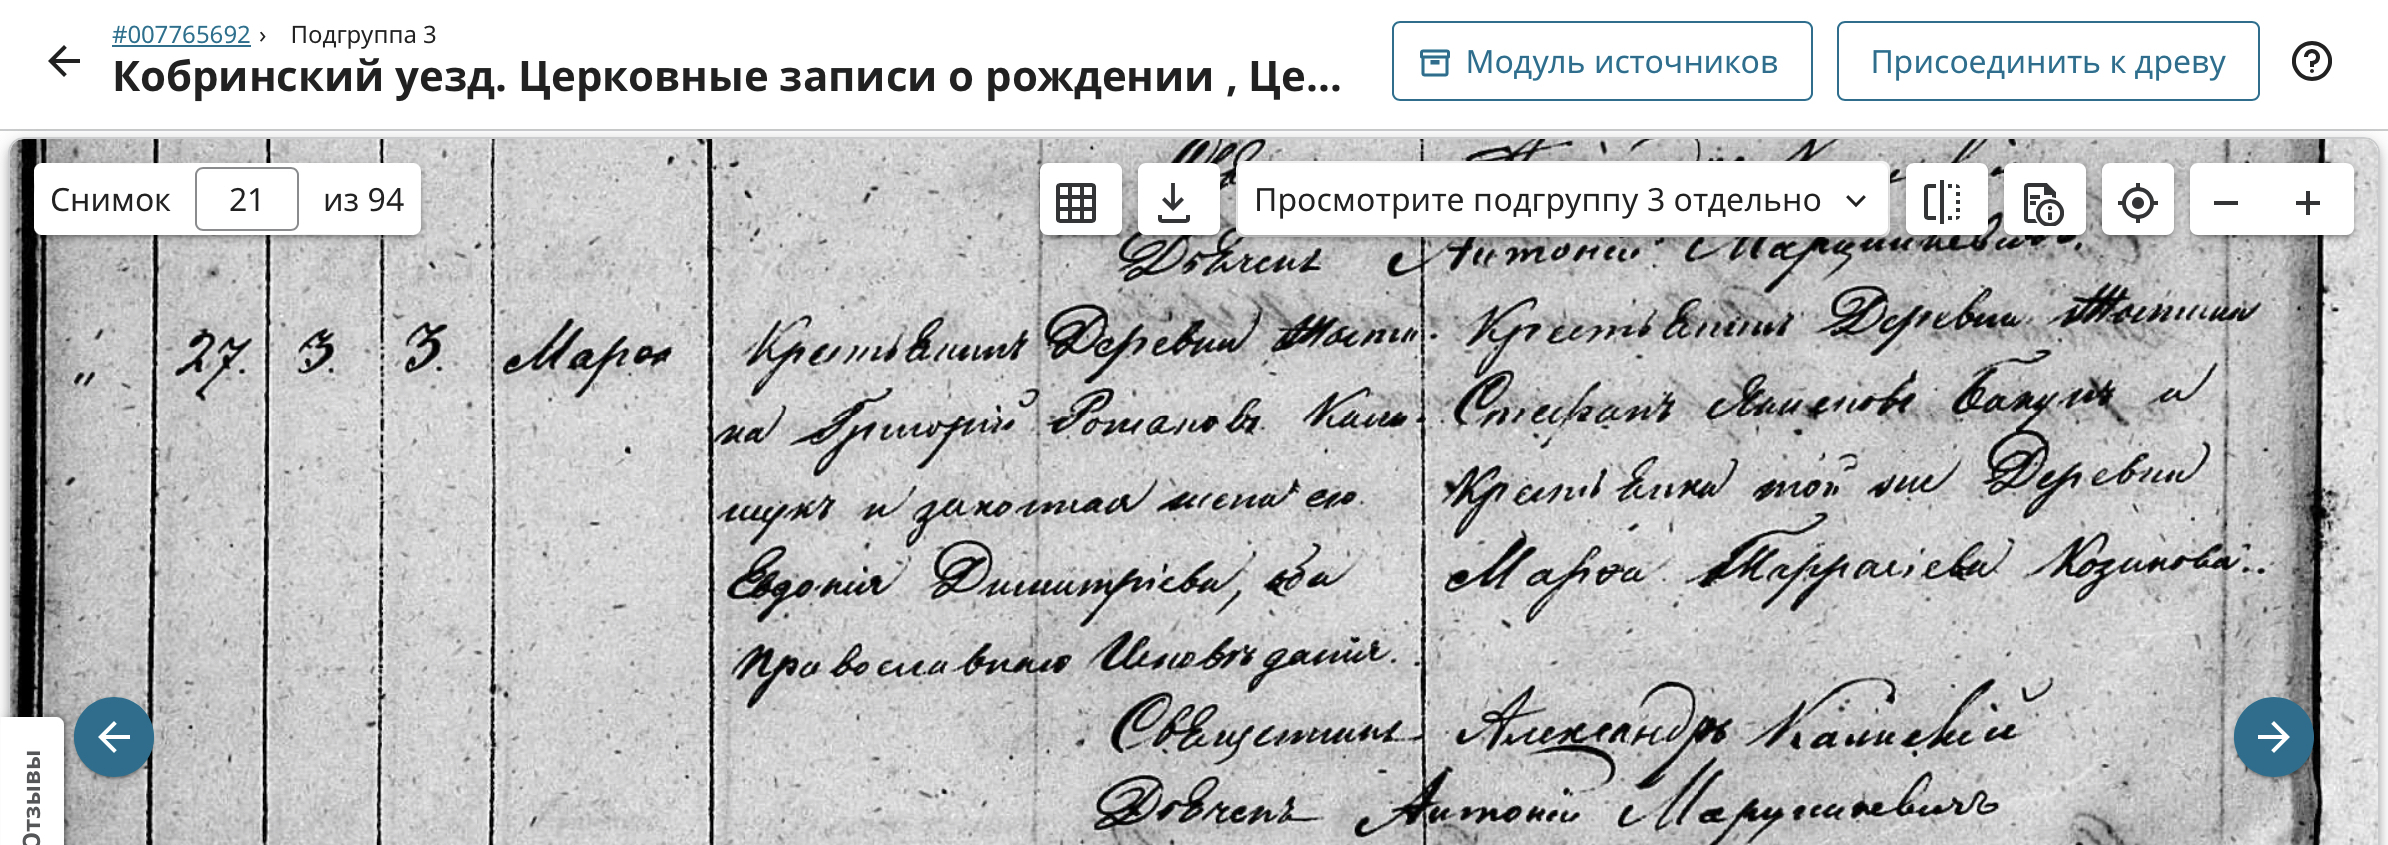 #007765692 › Подгруппа 3
Кобринский уезд. Церковные записи о рождении , Це...
Модуль источников
Присоединить к древу
Снимок 21 из 94
Просмотрите подгруппу 3 отдельно
Дьячекъ Антоній Марушкевичъ.
„ 27. 3. 3. Марѳа
Крестьянинъ Деревни
на Григорій Романовъ Кали-
щукъ и законная жена его
Евдокія Димитріева, оба
православнаго Исповѣданія.
Крестьянинъ Деревни
Стефанъ Якимовъ Бакунъ и
Крестьянка той же Деревни
Марѳа Таррасіева Козикова..
Священникъ Александръ
Дьячекъ Антоній Марушкевичъ
Отзывы